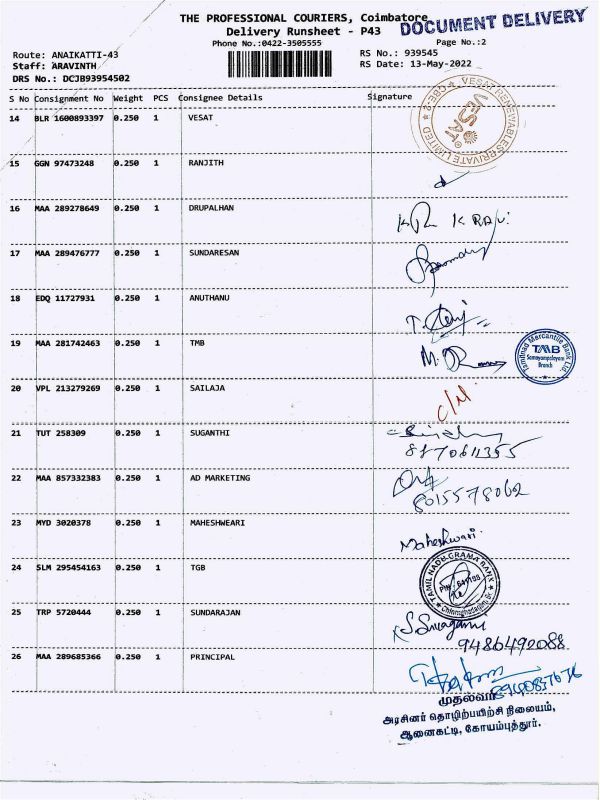 THE PROFESSIONAL COURIERS, Coimbatore
DOCUMENT DELIVERY
Delivery Runsheet - P43
Phone No.:0422-3505555
Page No.:2
Route: ANAIKATTI-43
RS No.: 939545
Staff: ARAVINTH
RS Date: 13-May-2022
DRS No.: DCJB93954502
S No Consignment No Weight PCS Consignee Details Signature
14 BLR 1600893397 0.250 1 VESAT
VESAT RENEWABLES PRIVATE LIMITED
CBE-2
VESAT
15 GGN 97473248 0.250 1 RANJITH
16 MAA 289278649 0.250 1 DRUPALHAN
K RAJU
17 MAA 289476777 0.250 1 SUNDARESAN
18 EDQ 11727931 0.250 1 ANUTHANU
19 MAA 281742463 0.250 1 TMB
Tamilnad Mercantile Bank Ltd.
TMB
Branch
20 VPL 213279269 0.250 1 SAILAJA
21 TUT 258309 0.250 1 SUGANTHI
8870611355
22 MAA 857332383 0.250 1 AD MARKETING
8015578062
23 MYD 3020378 0.250 1 MAHESHWEARI
Maheshwari.
24 SLM 295454163 0.250 1 TGB
TAMIL NADU GRAMA BANK
25 TRP 5720444 0.250 1 SUNDARAJAN
9486492088
26 MAA 289685366 0.250 1 PRINCIPAL
முதல்வர்
அரசினர் தொழிற்பயிற்சி நிலையம்,
ஆனைகட்டி, கோயம்புத்தூர்.